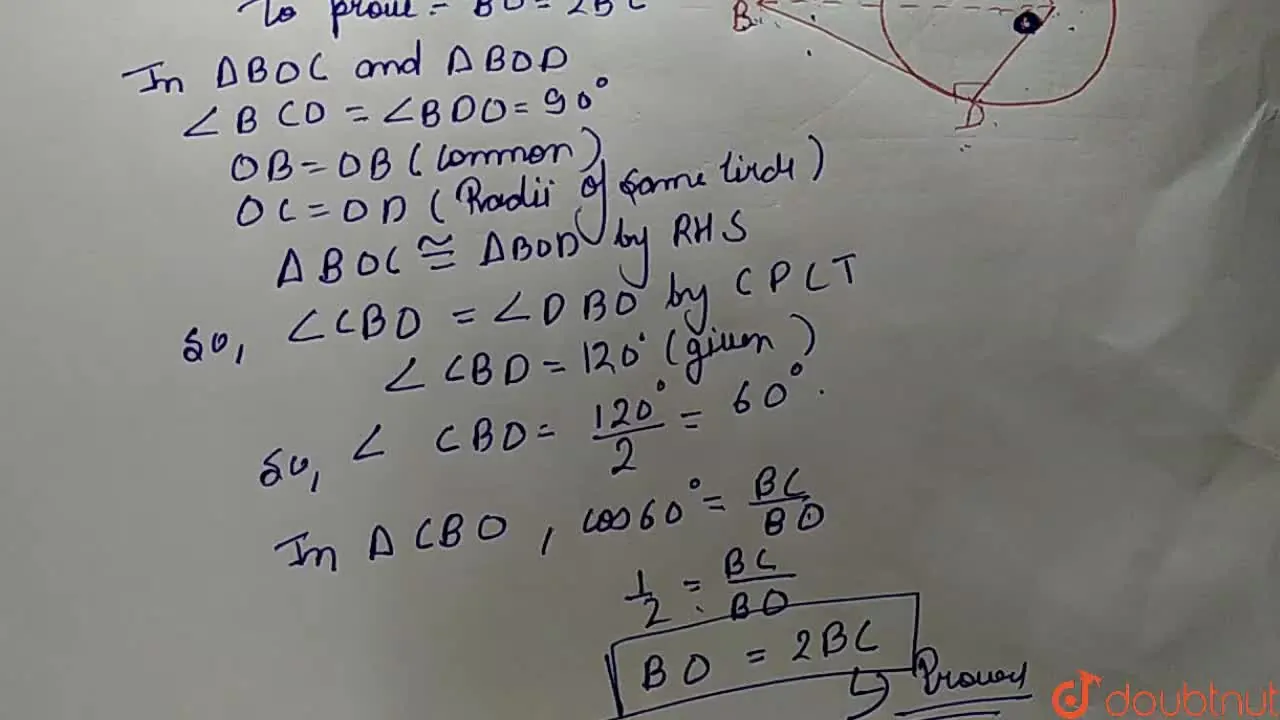 To prove = BO = 2BC
B
D
In ΔBOC and ΔBOD
∠BCO = ∠BDO = 90°
OB = OB (Common)
OC = OD (Radii of same circle)
ΔBOC ≅ ΔBOD by RHS
So, ∠CBO = ∠DBO by CPCT
∠CBD = 120° (given)
So, ∠ CBO = 120°/2 = 60°.
In ΔCBO, cos60° = BC/BO
1/2 = BC/BO
BO = 2BC
Proved
doubtnut